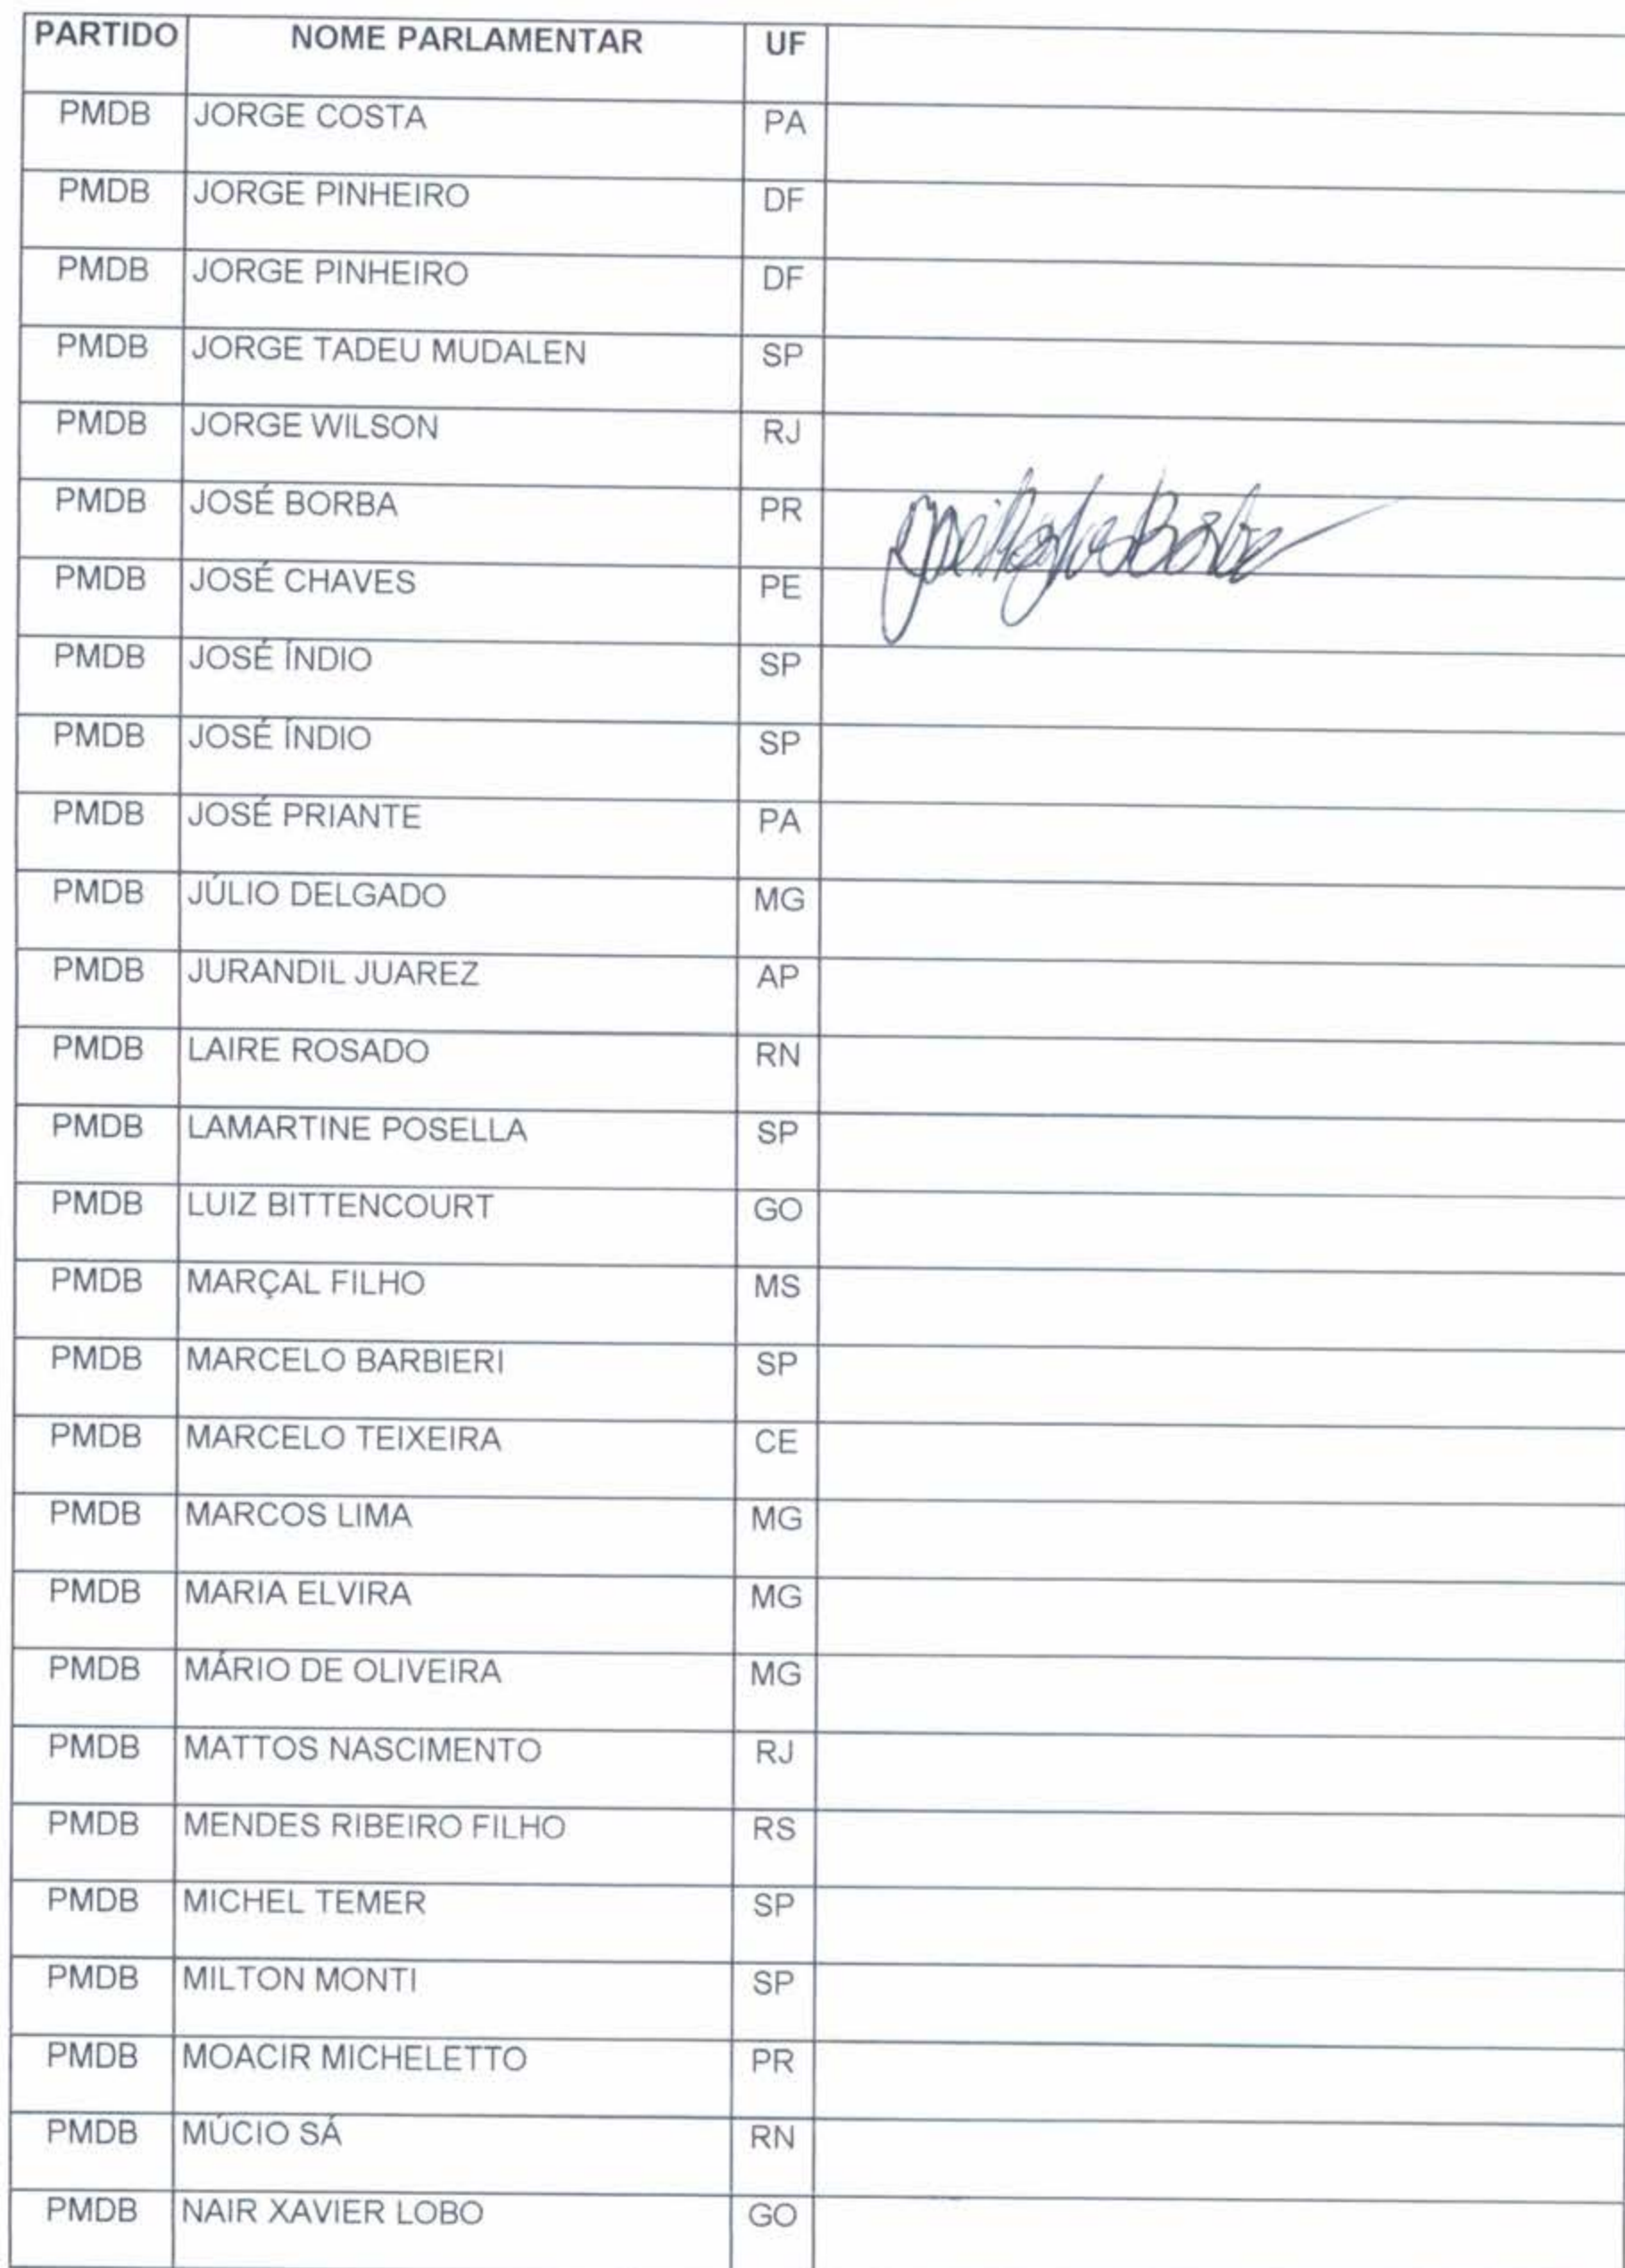 PARTIDO NOME PARLAMENTAR UF
PMDB JORGE COSTA PA
PMDB JORGE PINHEIRO DF
PMDB JORGE PINHEIRO DF
PMDB JORGE TADEU MUDALEN SP
PMDB JORGE WILSON RJ
PMDB JOSÉ BORBA PR
PMDB JOSÉ CHAVES PE
PMDB JOSÉ ÍNDIO SP
PMDB JOSÉ ÍNDIO SP
PMDB JOSÉ PRIANTE PA
PMDB JÚLIO DELGADO MG
PMDB JURANDIL JUAREZ AP
PMDB LAIRE ROSADO RN
PMDB LAMARTINE POSELLA SP
PMDB LUIZ BITTENCOURT GO
PMDB MARÇAL FILHO MS
PMDB MARCELO BARBIERI SP
PMDB MARCELO TEIXEIRA CE
PMDB MARCOS LIMA MG
PMDB MARIA ELVIRA MG
PMDB MÁRIO DE OLIVEIRA MG
PMDB MATTOS NASCIMENTO RJ
PMDB MENDES RIBEIRO FILHO RS
PMDB MICHEL TEMER SP
PMDB MILTON MONTI SP
PMDB MOACIR MICHELETTO PR
PMDB MÚCIO SÁ RN
PMDB NAIR XAVIER LOBO GO